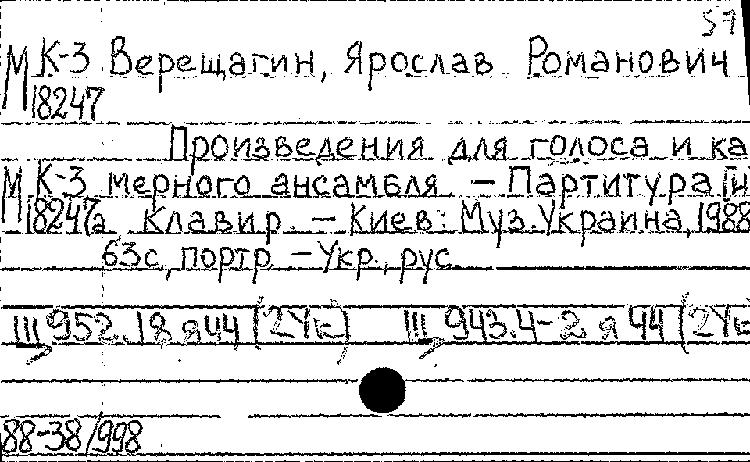 57
М К-3 Верещагин, Ярослав Романович
18247
Произведения для голоса и ка
М К-3 мерного ансамбля – Партитура [и
18247а клавир. – Киев: Муз. Украина, 1988
63с, портр – Укр., рус
III 952.18 я44 (2Ук) III 943.4-2 я 44 (2Ук
88-38/998